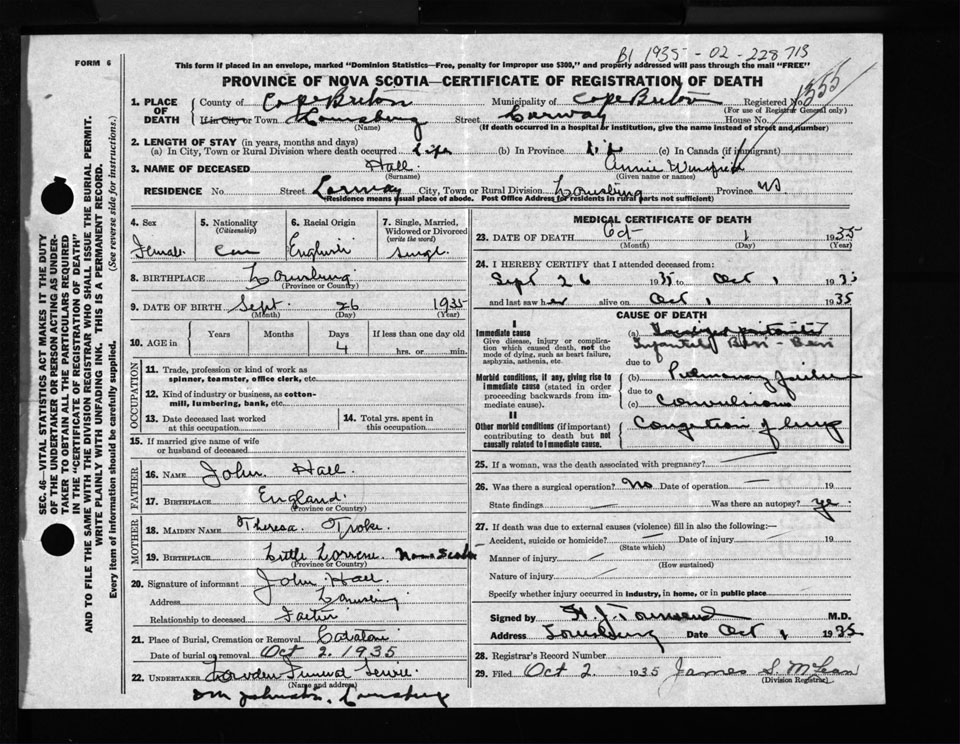 B1 1935 - 02 - 228713
FORM 6
This form if placed in an envelope, marked "Dominion Statistics—Free, penalty for improper use $300," and properly addressed will pass through the mail "FREE"
PROVINCE OF NOVA SCOTIA—CERTIFICATE OF REGISTRATION OF DEATH
1355
1. PLACE OF DEATH
County of Cape Breton Municipality of Cape Breton Registered No.
(For use of Registrar General only)
If in City or Town Louisburg Street Lorway House No.
(Name) (If death occurred in a hospital or institution, give the name instead of street and number)
2. LENGTH OF STAY (in years, months and days)
(a) In City, Town or Rural Division where death occurred Life (b) In Province Life (c) In Canada (if immigrant)
3. NAME OF DECEASED Hall Annie Winifred
(Surname) (Given name or names)
RESIDENCE No. Street Lorway City, Town or Rural Division Louisburg Province NS
(Residence means usual place of abode. Post Office Address for residents in rural parts not sufficient)
4. Sex Female
5. Nationality (Citizenship) Can
6. Racial Origin English
7. Single, Married, Widowed or Divorced (write the word) Single
8. BIRTHPLACE Louisburg
(Province or Country)
9. DATE OF BIRTH Sept. 26 1935
(Month) (Day) (Year)
10. AGE in Years Months Days If less than one day old
4 hrs. or min.
OCCUPATION
11. Trade, profession or kind of work as spinner, teamster, office clerk, etc.
12. Kind of industry or business, as cotton-mill, lumbering, bank, etc.
13. Date deceased last worked at this occupation
14. Total yrs. spent in this occupation
15. If married give name of wife or husband of deceased
FATHER
16. NAME John Hall
17. BIRTHPLACE England
(Province or Country)
MOTHER
18. MAIDEN NAME Theresa Troke
19. BIRTHPLACE Little Lorraine Nova Scotia
(Province or Country)
20. Signature of informant John Hall
Address Louisburg
Relationship to deceased Father
21. Place of Burial, Cremation or Removal Catalone
Date of burial or removal Oct 2. 1935
22. UNDERTAKER Funeral Service
(Name and address)
Louisburg
MEDICAL CERTIFICATE OF DEATH
23. DATE OF DEATH Oct 1 1935
(Month) (Day) (Year)
24. I HEREBY CERTIFY that I attended deceased from:
Sept 26 1935 to Oct 1 1935
and last saw her alive on Oct 1 1935
CAUSE OF DEATH
I
Immediate cause
Give disease, injury or complication which caused death, not the mode of dying, such as heart failure, asphyxia, asthenia, etc.
(a)
Infantile Beri-Beri
due to
Morbid conditions, if any, giving rise to immediate cause (stated in order proceeding backwards from immediate cause).
(b) Pulmonary failure
due to
(c) Convulsions
II
Other morbid conditions (if important) contributing to death but not causally related to immediate cause.
Congestion of lungs
25. If a woman, was the death associated with pregnancy?
26. Was there a surgical operation? No Date of operation — 19
State findings — Was there an autopsy? yes
27. If death was due to external causes (violence) fill in also the following:—
Accident, suicide or homicide? Date of injury 19
(State which)
Manner of injury
(How sustained)
Nature of injury
Specify whether injury occurred in industry, in home, or in public place
Signed by H. J. Townsend M.D.
Address Louisburg Date Oct 1 1935
28. Registrar's Record Number
29. Filed Oct 2 1935 James S. McLean
(Division Registrar)
SEC. 46—VITAL STATISTICS ACT MAKES IT THE DUTY
OF THE UNDERTAKER OR PERSON ACTING AS UNDERTAKER TO OBTAIN ALL THE PARTICULARS REQUIRED
IN THE "CERTIFICATE OF REGISTRATION OF DEATH"
AND TO FILE THE SAME WITH THE DIVISION REGISTRAR WHO SHALL ISSUE THE BURIAL PERMIT.
WRITE PLAINLY WITH UNFADING INK. THIS IS A PERMANENT RECORD.
Every item of information should be carefully supplied. (See reverse side for instructions.)